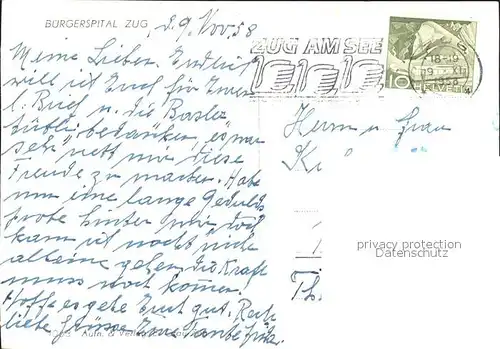 BÜRGERSPITAL ZUG
29. Nov. 58
Meine Lieben. Endlich
will ich Euch für Euren
l. Brief u. die Basler
bedanken, es war
sehr nett mir diese
Freude zu machen. Habe
nun eine lange Gedulds
probe hinter mir, doch
kann ich noch nicht
alleine gehen, die Kraft
muss noch kommen.
Hoffe es gehe Euch gut. Rech
liebe Grüsse Eure Tante
ZUG AM SEE
18-19
10
HELVETIA
Herrn u. Frau
K
Th.
privacy protection
Datenschutz